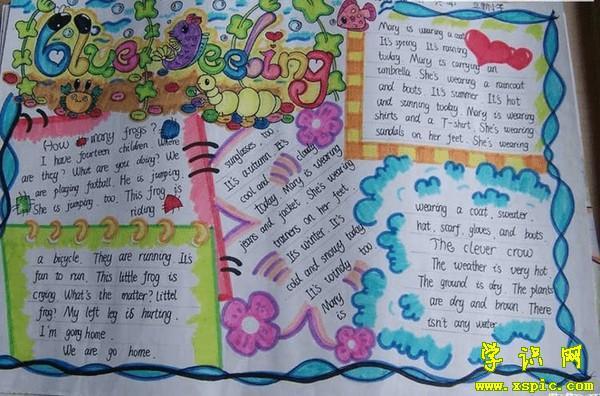 Blue Feeling
How many frogs?
I have fourteen children. Where
are they? What are you doing? We
are plaging football. He is jumping.
She is jumping too. This frog is
riding
a bicycle. They are running It's
fun to run. This little frog is
crying. What's the matter? Littel
frog? My left leg is hurting.
I'm gong home.
We are go home.
sunglasses. too.
It's autumn. It's
cool and cloudy
today Mary is wearing
jeans and jacket. She's wearing
trainers on her feet.
It's winter. It's
cold and snowy today
It's windy too
Mary
is
Mary is wearing a coat
It's spring It's raining
today. Mary is carrying an
umbrella. She's wearing a raincoat
and boots. It's summer. It's hot
and sunning today. Mary is wearing
shirts and a T-shirt. She's wearing
sandals on her feet. She's wearing
wearing a coat. sweater.
hat. scarf. gloves. and boots.
The clever crow
The weather is very hot.
The ground is dry. The plants
are dry and brown. There
isn't any water.
学识网
www.xspic.com